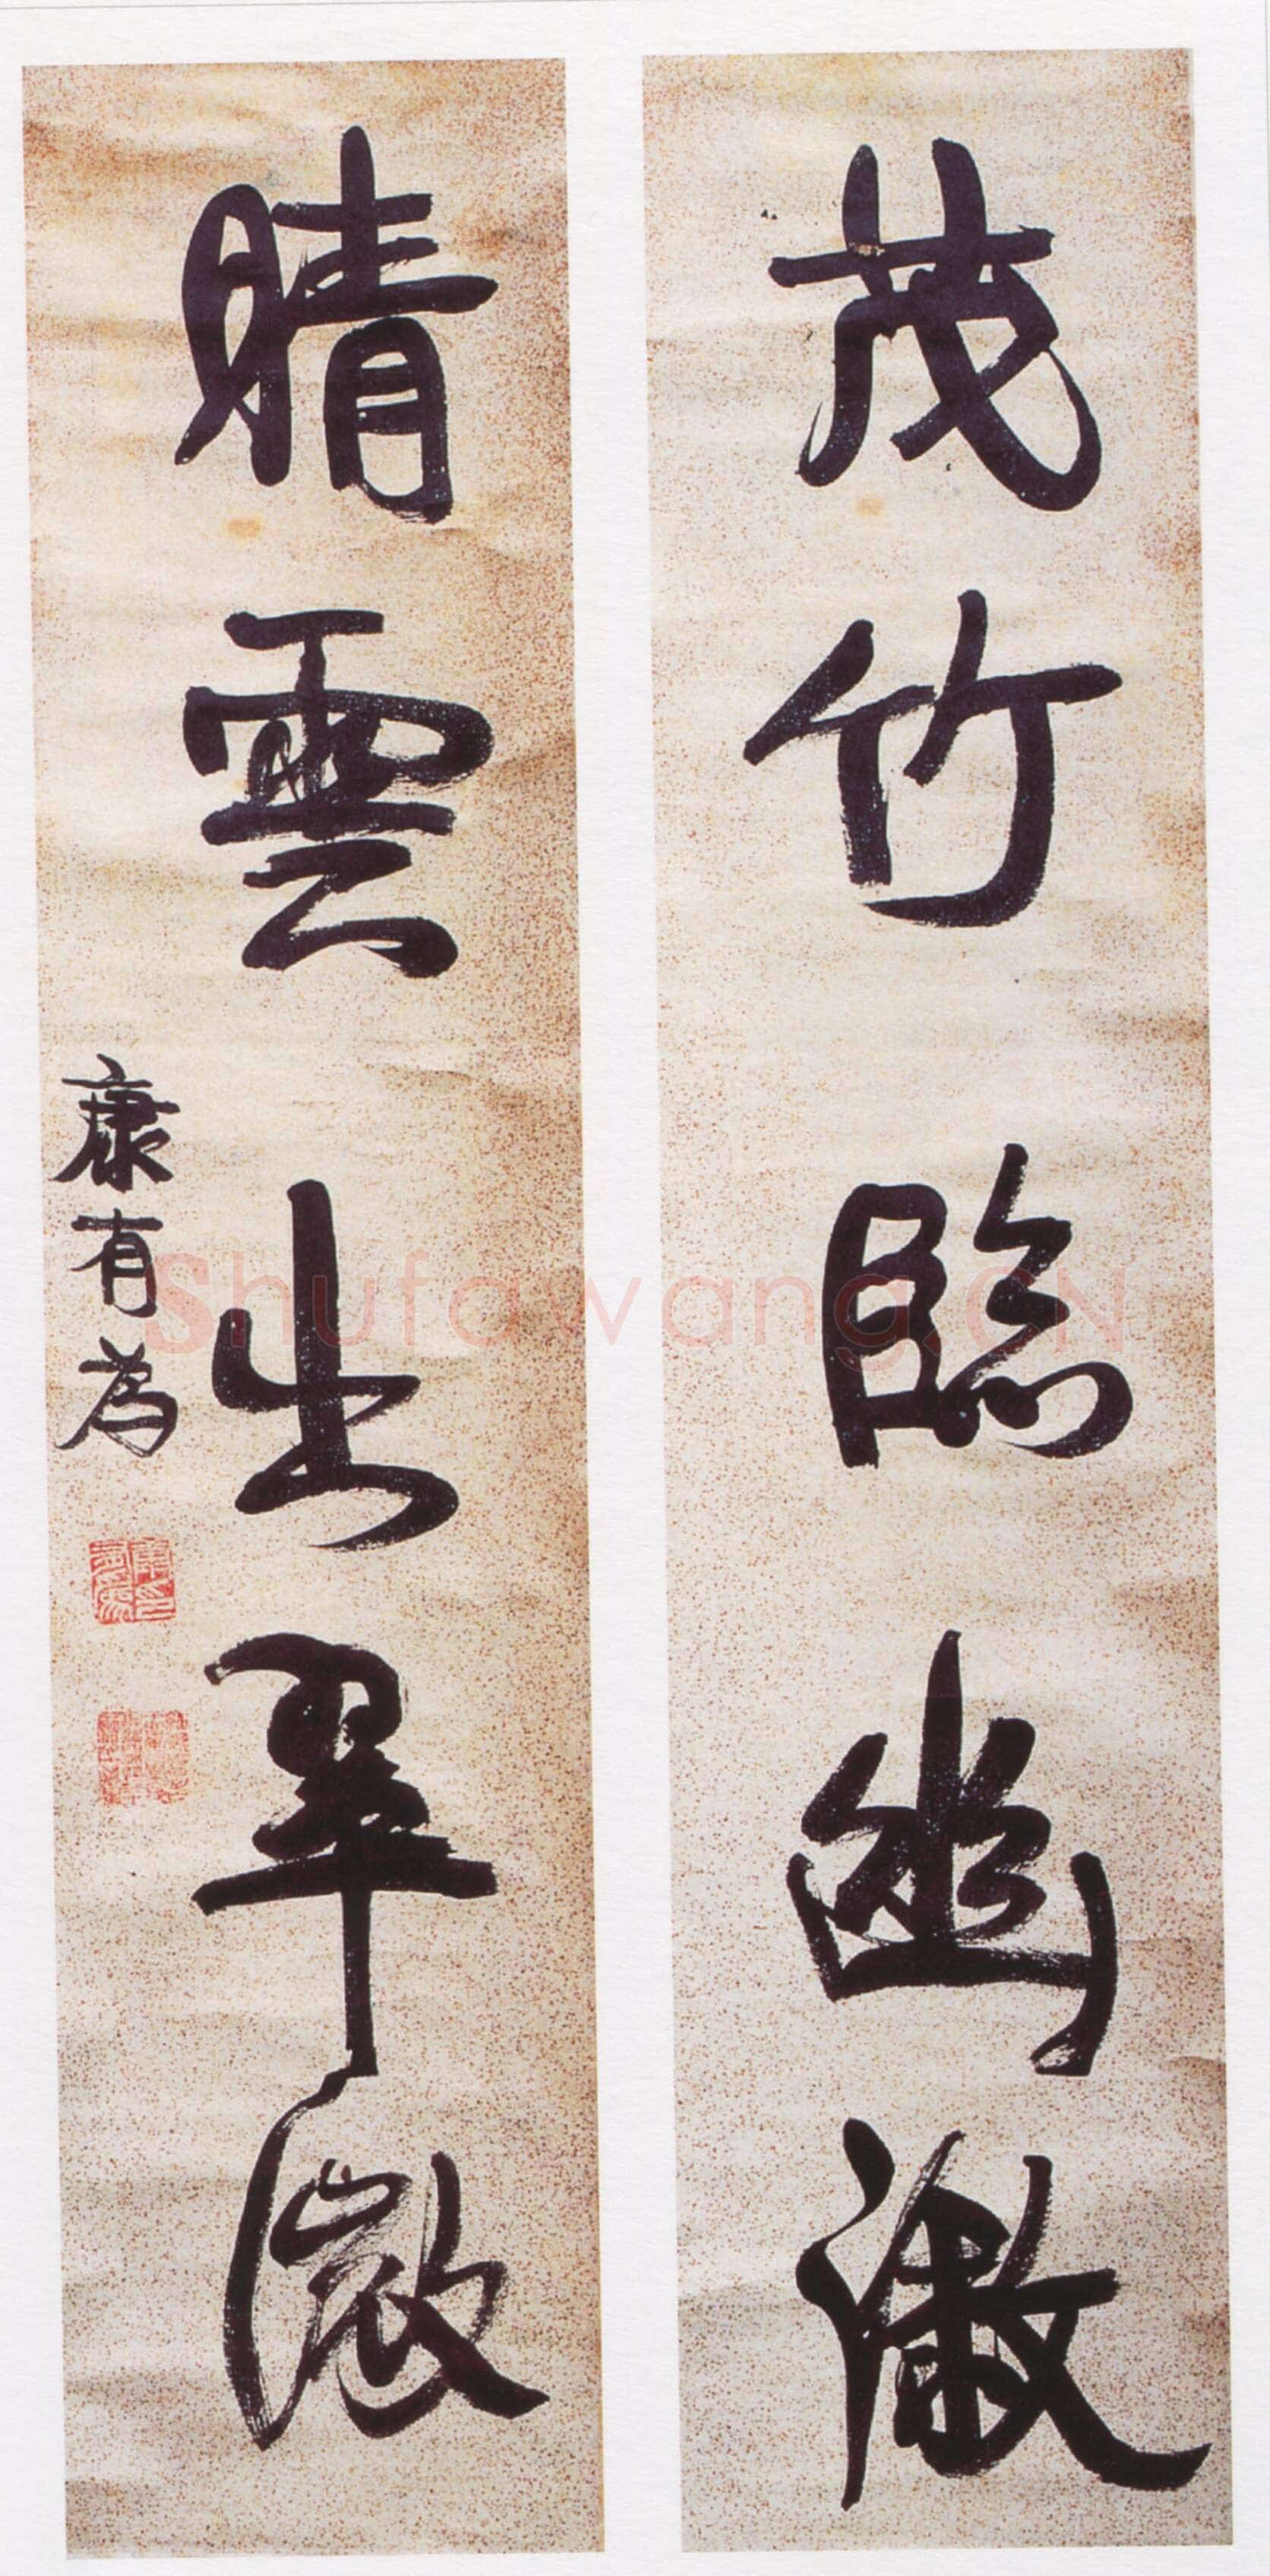 茂竹臨幽澈
晴雲出翠微
康有為
Shufawang.CN